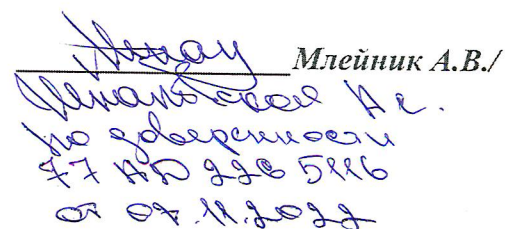 Млейник А.В./
А.С.
по доверенности
77 АД 226 5116
от 07.11.2022